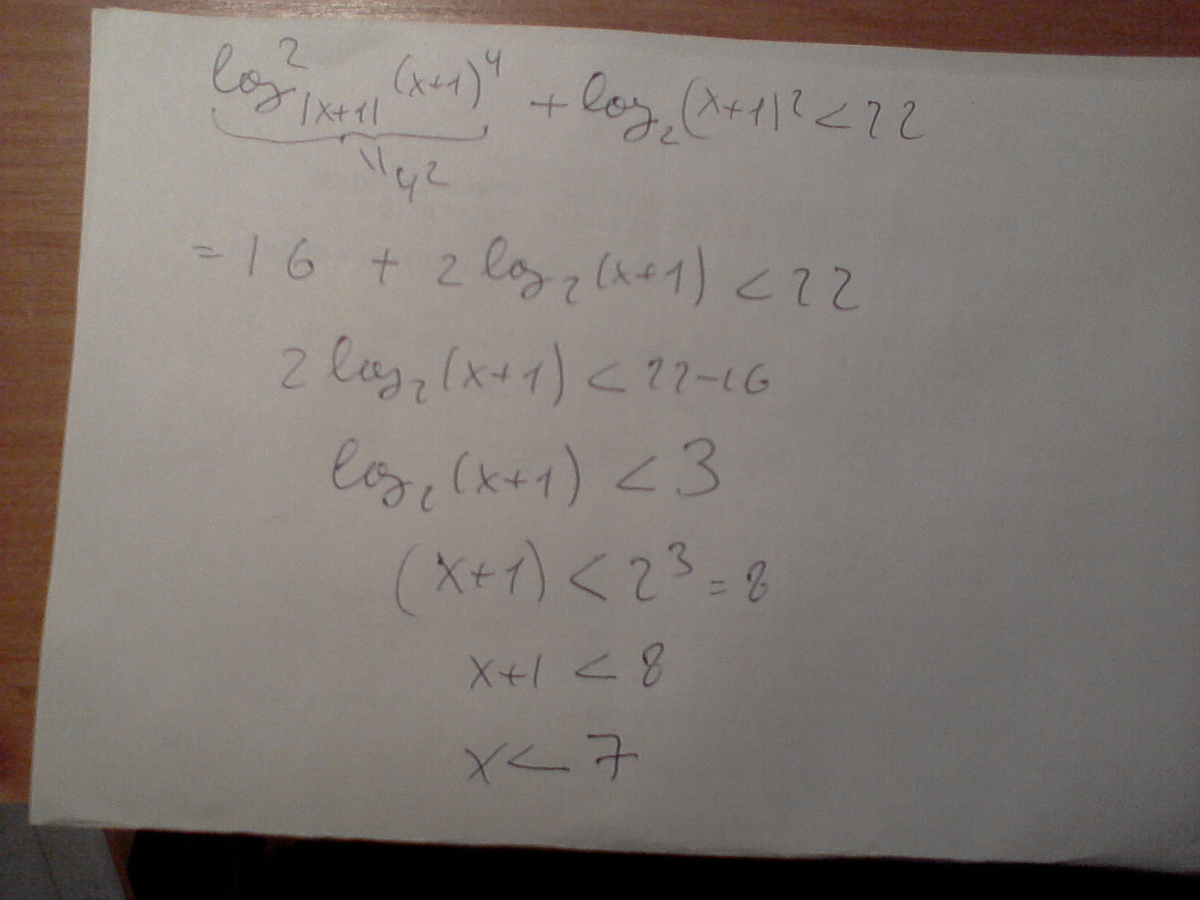 log²_|x+1| (x+1)⁴ + log₂(x+1)² < 22
= 4²
= 16 + 2 log₂(x+1) < 22
2 log₂(x+1) < 22-16
log₂(x+1) < 3
(x+1) < 2³ = 8
x+1 < 8
x < 7